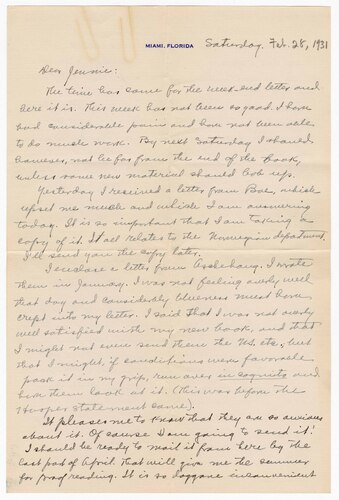 MIAMI, FLORIDA
Saturday, Feb. 28, 1931
Dear Jennie:
The time has come for the week-end letter and
here it is. This week has not been so good. I have
had considerable pain and have not been able
to do much work. By next Saturday I should,
however, not be far from the end of the book,
unless some new material should bob up.
Yesterday I received a letter from Boe, which
upset me much and which I am answering
today. It is so important that I am taking a
copy of it. It all relates to the Norwegian department.
I'll send you the copy later.
I enclose a letter from Aschehoug. I wrote
them in January. I was not feeling overly well
that day and considerable blueness must have
crept into my letter. I said that I was not overly
well satisfied with my new book, and that
I might not even send them the MS, etc., but
that I might, if conditions were favorable
pack it in my grip, run over incognito and
have them look at it. (This was before the
Hooper statement came).
It pleases me to know that they are so anxious
about it. Of course I am going to send it!
I should be ready to mail it from here by the
last part of April. That will give me the summer
for proof reading. It is so doggone inconvenient